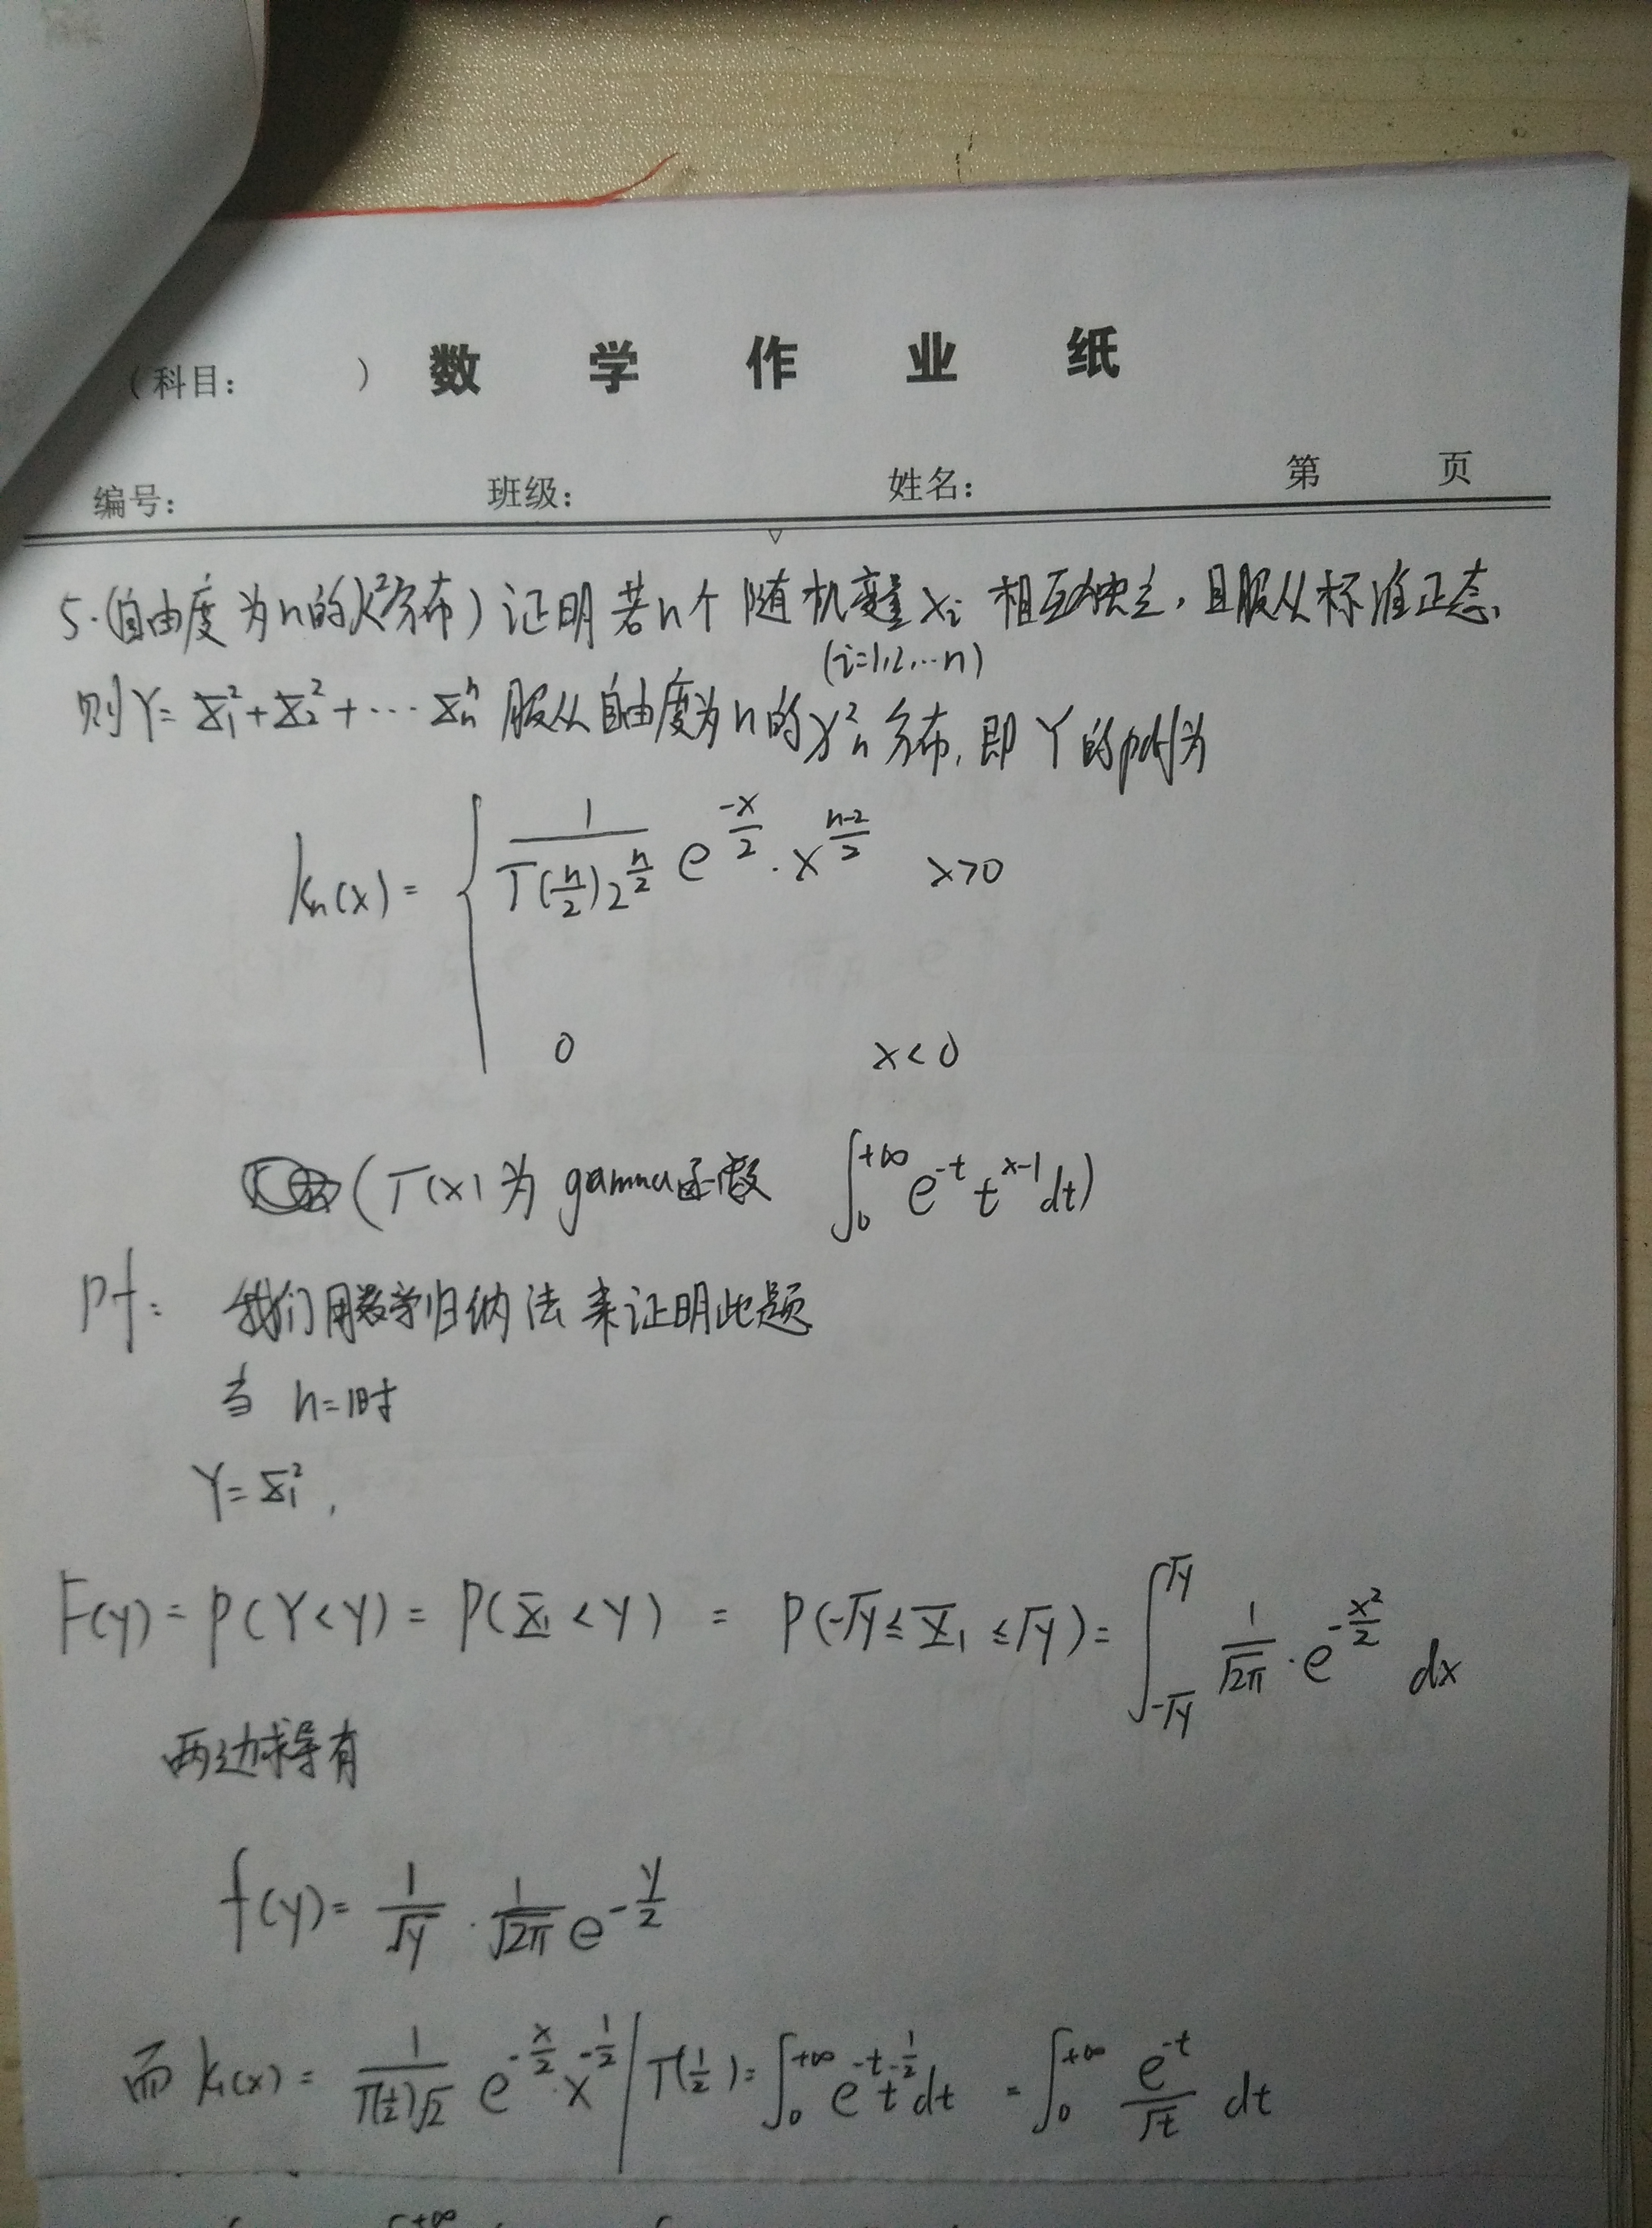 (科目: ) 数学作业纸
编号: 班级: 姓名: 第 页
5.(自由度为n的χ²分布) 证明 若n个 随机变量 Xi 相互独立, 且服从标准正态,
(i=1,2,…n)
则Y= X₁²+X₂²+… Xₙⁿ 服从自由度为n的χ²ₙ分布, 即 Y的pdf为
kₙ(x) = { 1/(Γ(n/2)2^(n/2)) e^(-x/2) · x^((n-2)/2) x>0
0 x<0
(Γ(x) 为 gamma函数 ∫₀^(+∞) e^(-t) t^(x-1) dt)
pf: 我们用数学归纳法来证明此题
当 n=1时
Y= X₁²,
F(y) = P(Y<y) = P(X₁<y) = P(-√y ≤ X₁ ≤ √y) = ∫_(-√y)^(√y) 1/√(2π) · e^(-x²/2) dx
两边求导有
f(y) = 1/√y · 1/√(2π) e^(-y/2)
而 k₁(x) = 1/(Γ(1/2)√2) e^(-x/2) · x^(-1/2) | Γ(1/2) = ∫₀^(+∞) e^(-t) t^(-1/2) dt = ∫₀^(+∞) e^(-t)/√t dt